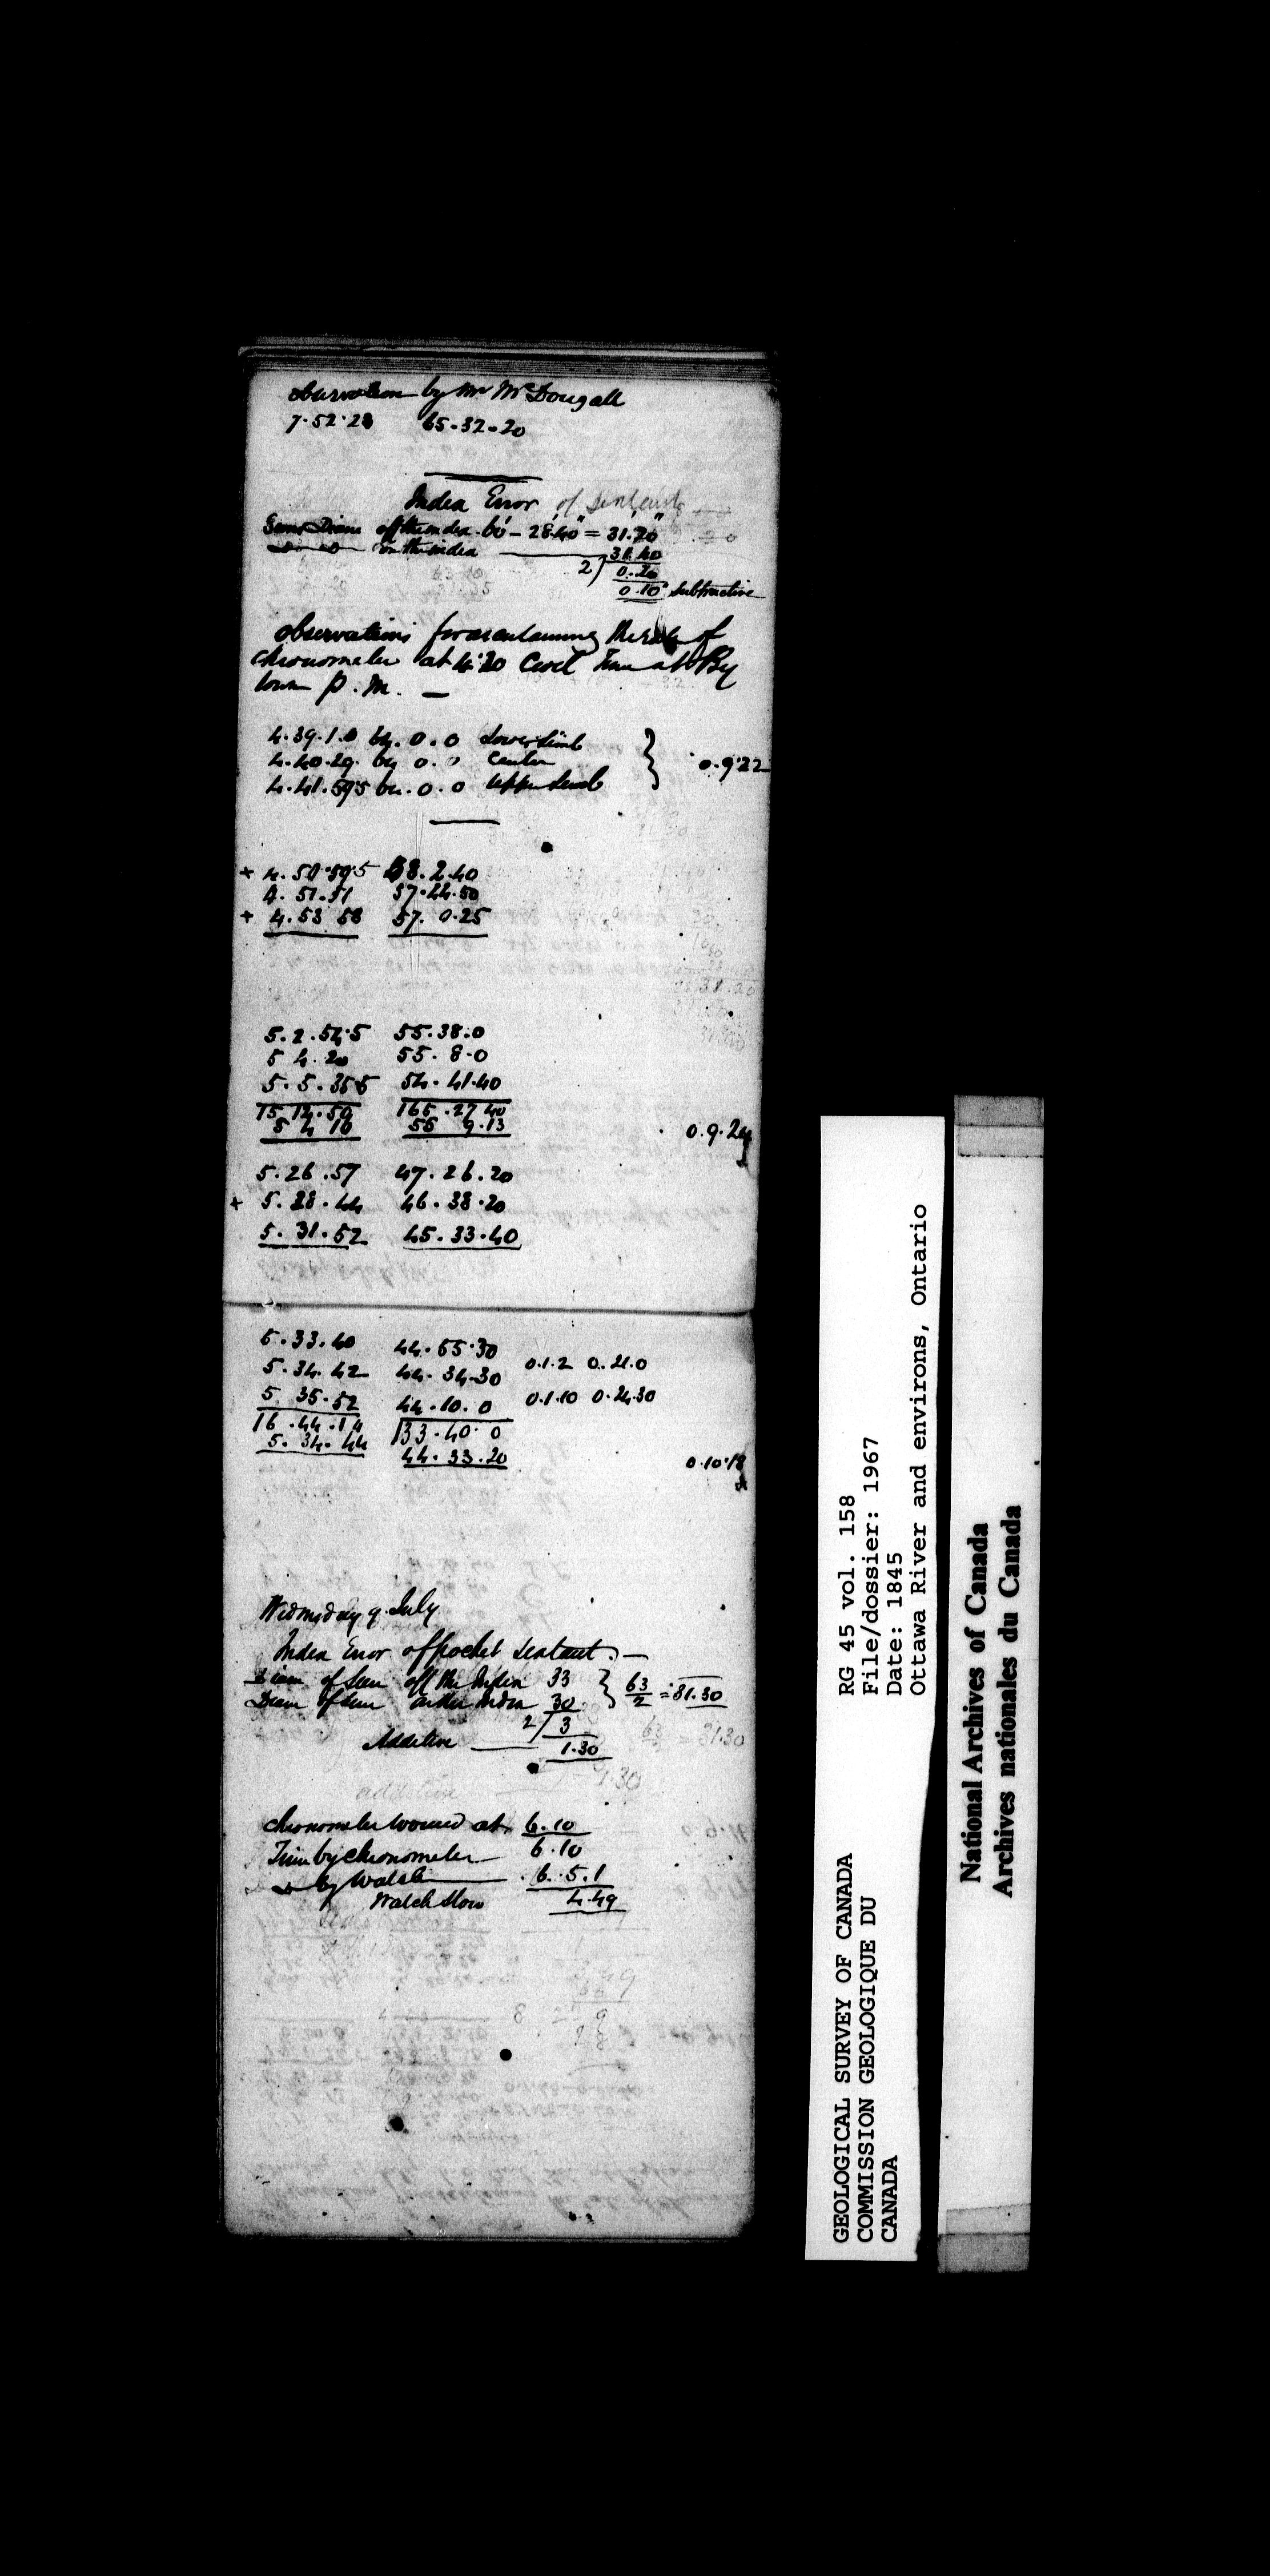 Observation by Mr McDougall
7.52.28 65.32.20
Index Error of Sextant
Suns Diam off the index 60' - 28'.40" = 31'.20"
Do Do on the index 31.40
2) 0.20
0.10" Subtractive
Observations for ascertaining the rate of
chronometer at 4.20 Civil Time at By
town P.M. —
4.39.1.0 64.0.0 Lower limb
4.40.29. 64 0.0 Center
4.41.59.5 64.0.0 Upper limb
0.9.22
+ 4.50.59.5 58.2.40
4.51.51 57.44.50
+ 4.53 58 57.0.25
5.2.54.5 55.38.0
5 4.20 55.8.0
5.5.35.5 54.41.40
15.12.50 165.27 40
5 4 16 55 9.13 0.9.24
5.26.57 47.26.20
+ 5.28.44 46.38.20
5.31.52 45.33.40
5.33.40 44.55.30
5.34.42 44.34.30 0.1.2 0.21.0
5 35.52 44.10.0 0.1.10 0.24.30
16.44.14 133.40.0
5.34.44 44.33.20 0.10.18
Wednesday 9 July
Index Error of pocket Sextant. —
Diam of Sun off the Index 33
Diam of Sun on the Index 30
63/2 = 31.30
2) 3
Additive 1.30
63 = 31.30
1.30
additive
Chronometer wound at 6.10
Time by Chronometer 6.10
Do by Watch 6.5.1
Watch Slow 4.49
GEOLOGICAL SURVEY OF CANADA
COMMISSION GEOLOGIQUE DU
CANADA
RG 45 vol. 158
File/dossier: 1967
Date: 1845
Ottawa River and environs, Ontario
National Archives of Canada
Archives nationales du Canada